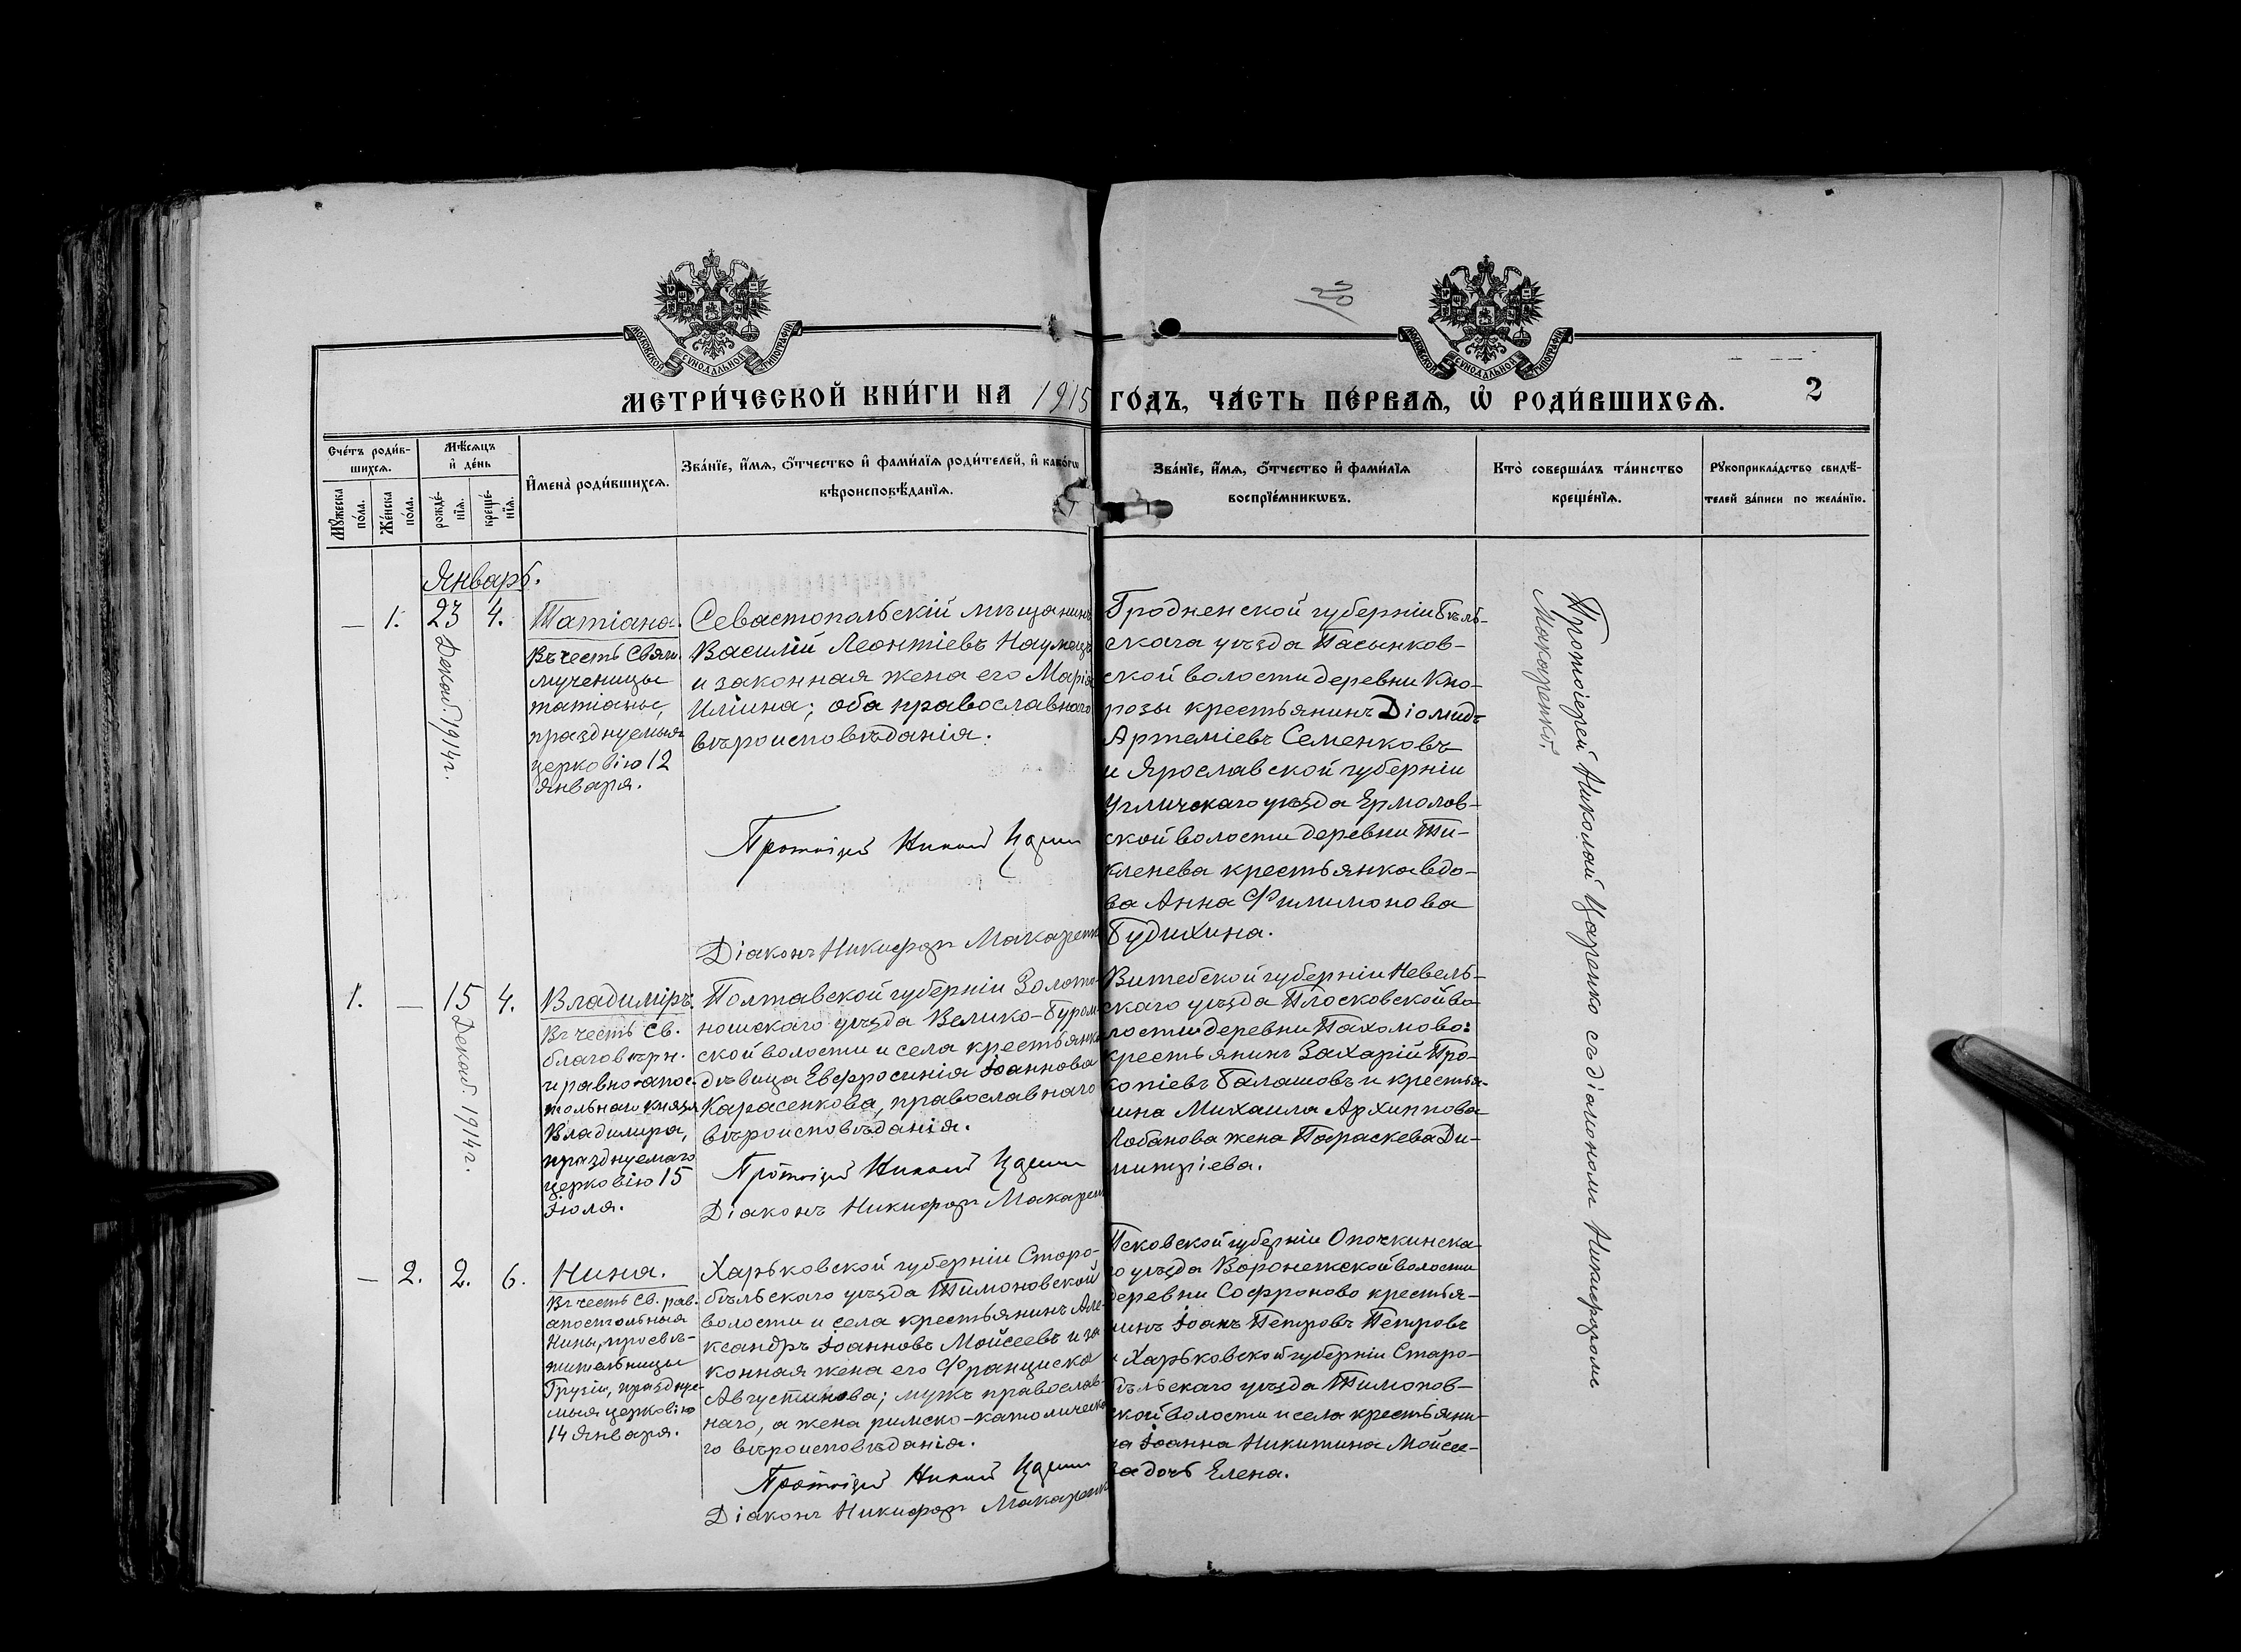 МОСКОВСКОЙ СУНОДАЛЬНОЙ ТИПОГРАФІИ
МОСКОВСКОЙ СУНОДАЛЬНОЙ ТИПОГРАФІИ
МЕТРИ́ЧЕСКОЙ КНИ́ГИ НА 1915 ГО́ДЪ, ЧА́СТЬ ПЕ́РВАѦ, Ѡ҆ РОДИ́ВШИХСѦ. 2
Сче́тъ роди́в-
шихсѧ.
Мꙋ́жеска
по́ла.
Же́нска
по́ла.
Мѣ́сѧцъ
и҆ де́нь
рожде́-
нїѧ.
креще́-
нїѧ.
И҆мена̀ роди́вшихсѧ.
Зва́нїе, и҆́мѧ, ѻ҆́тчество и҆ фами́лїѧ роди́телей, и҆ како́гѡ
вѣроисповѣ́данїѧ.
Зва́нїе, и҆́мѧ, ѻ҆́тчество и҆ фами́лїѧ
воспрїе́мникѡвъ.
Кто̀ соверша́лъ та́инство
креще́нїѧ.
Рꙋкоприкла́дство свидѣ́-
телей за́писи по жела́нїю.
Январь.
— 1. 23 4.
Декаб. 1914 г.
Татіана.
Въ честь Свят.
мученицы
татіаны,
празднуемыя
церковію 12
Января.
Севастопольскій мѣщанинъ
Василій Леонтіевъ
и законная жена его Марія
Иліина; оба православнаго
вѣроисповѣданія.
Протоіерей Николай Царенко
Діаконъ Никифоръ Макаренко
Гродненской губерніи Бѣль-
скаго уѣзда Пасынков-
ской волости деревни Кно-
розы крестьянинъ Діомидъ
Артеміевъ Семенковъ
и Ярославской губерніи
Угличскаго уѣзда Ермолов-
ской волости деревни Ти-
кленева крестьянка вдо-
ва Анна Филимонова
Будихина.
Протоіерей Николай Царенко съ діакономъ Никифоромъ
Макаренко.
1. — 15 4.
Декаб. 1914 г.
Владиміръ.
Въ честь Св.
благовѣрн.
и равноапос-
тольнаго князя
Владимира,
празднуемаго
церковію 15
Іюля.
Полтавской губерніи Золото-
ношскаго уѣзда Велико-Буром-
ской волости и села крестьянка
дѣвица Евфросинія Іоаннова
Карасенкова, православнаго
вѣроисповѣданія.
Протоіерей Николай Царенко
Діаконъ Никифоръ Макаренко
Витебской губерніи Невель-
скаго уѣзда Плосковской во-
лости деревни Пахомово:
крестьянинъ Захарій Про-
копіевъ Балашовъ и крестья-
нина Михаила Архиппова
Лобанова жена Параскева Ди-
митріева.
— 2. 2. 6.
Нина.
Въ честь Св. рав.
апостольныя
Нины, просвѣ-
тительницы
Грузіи, праздну-
емыя церковію
14 Января.
Харьковской губерніи Старо-
бѣльскаго уѣзда Тимоновской
волости и села крестьянинъ Але-
ксандръ Іоанновъ Мойсеевъ и за
конная жена его Франциска
Августинова; мужъ православ-
наго, а жена римско-католическа
го вѣроисповѣданія.
Протоіерей Николай Царенко
Діаконъ Никифоръ Макаренко
Псковской губерніи Опочкинска-
го уѣзда Воронежской волости
деревни Софроново крестья-
нинъ Іоанъ Петровъ Петровъ
и Харьковской губерніи Старо-
бѣльскаго уѣзда Тимонов-
ской волости и села крестьяни-
на Іоанна Никитина Мойсе-
ва дочь Елена.